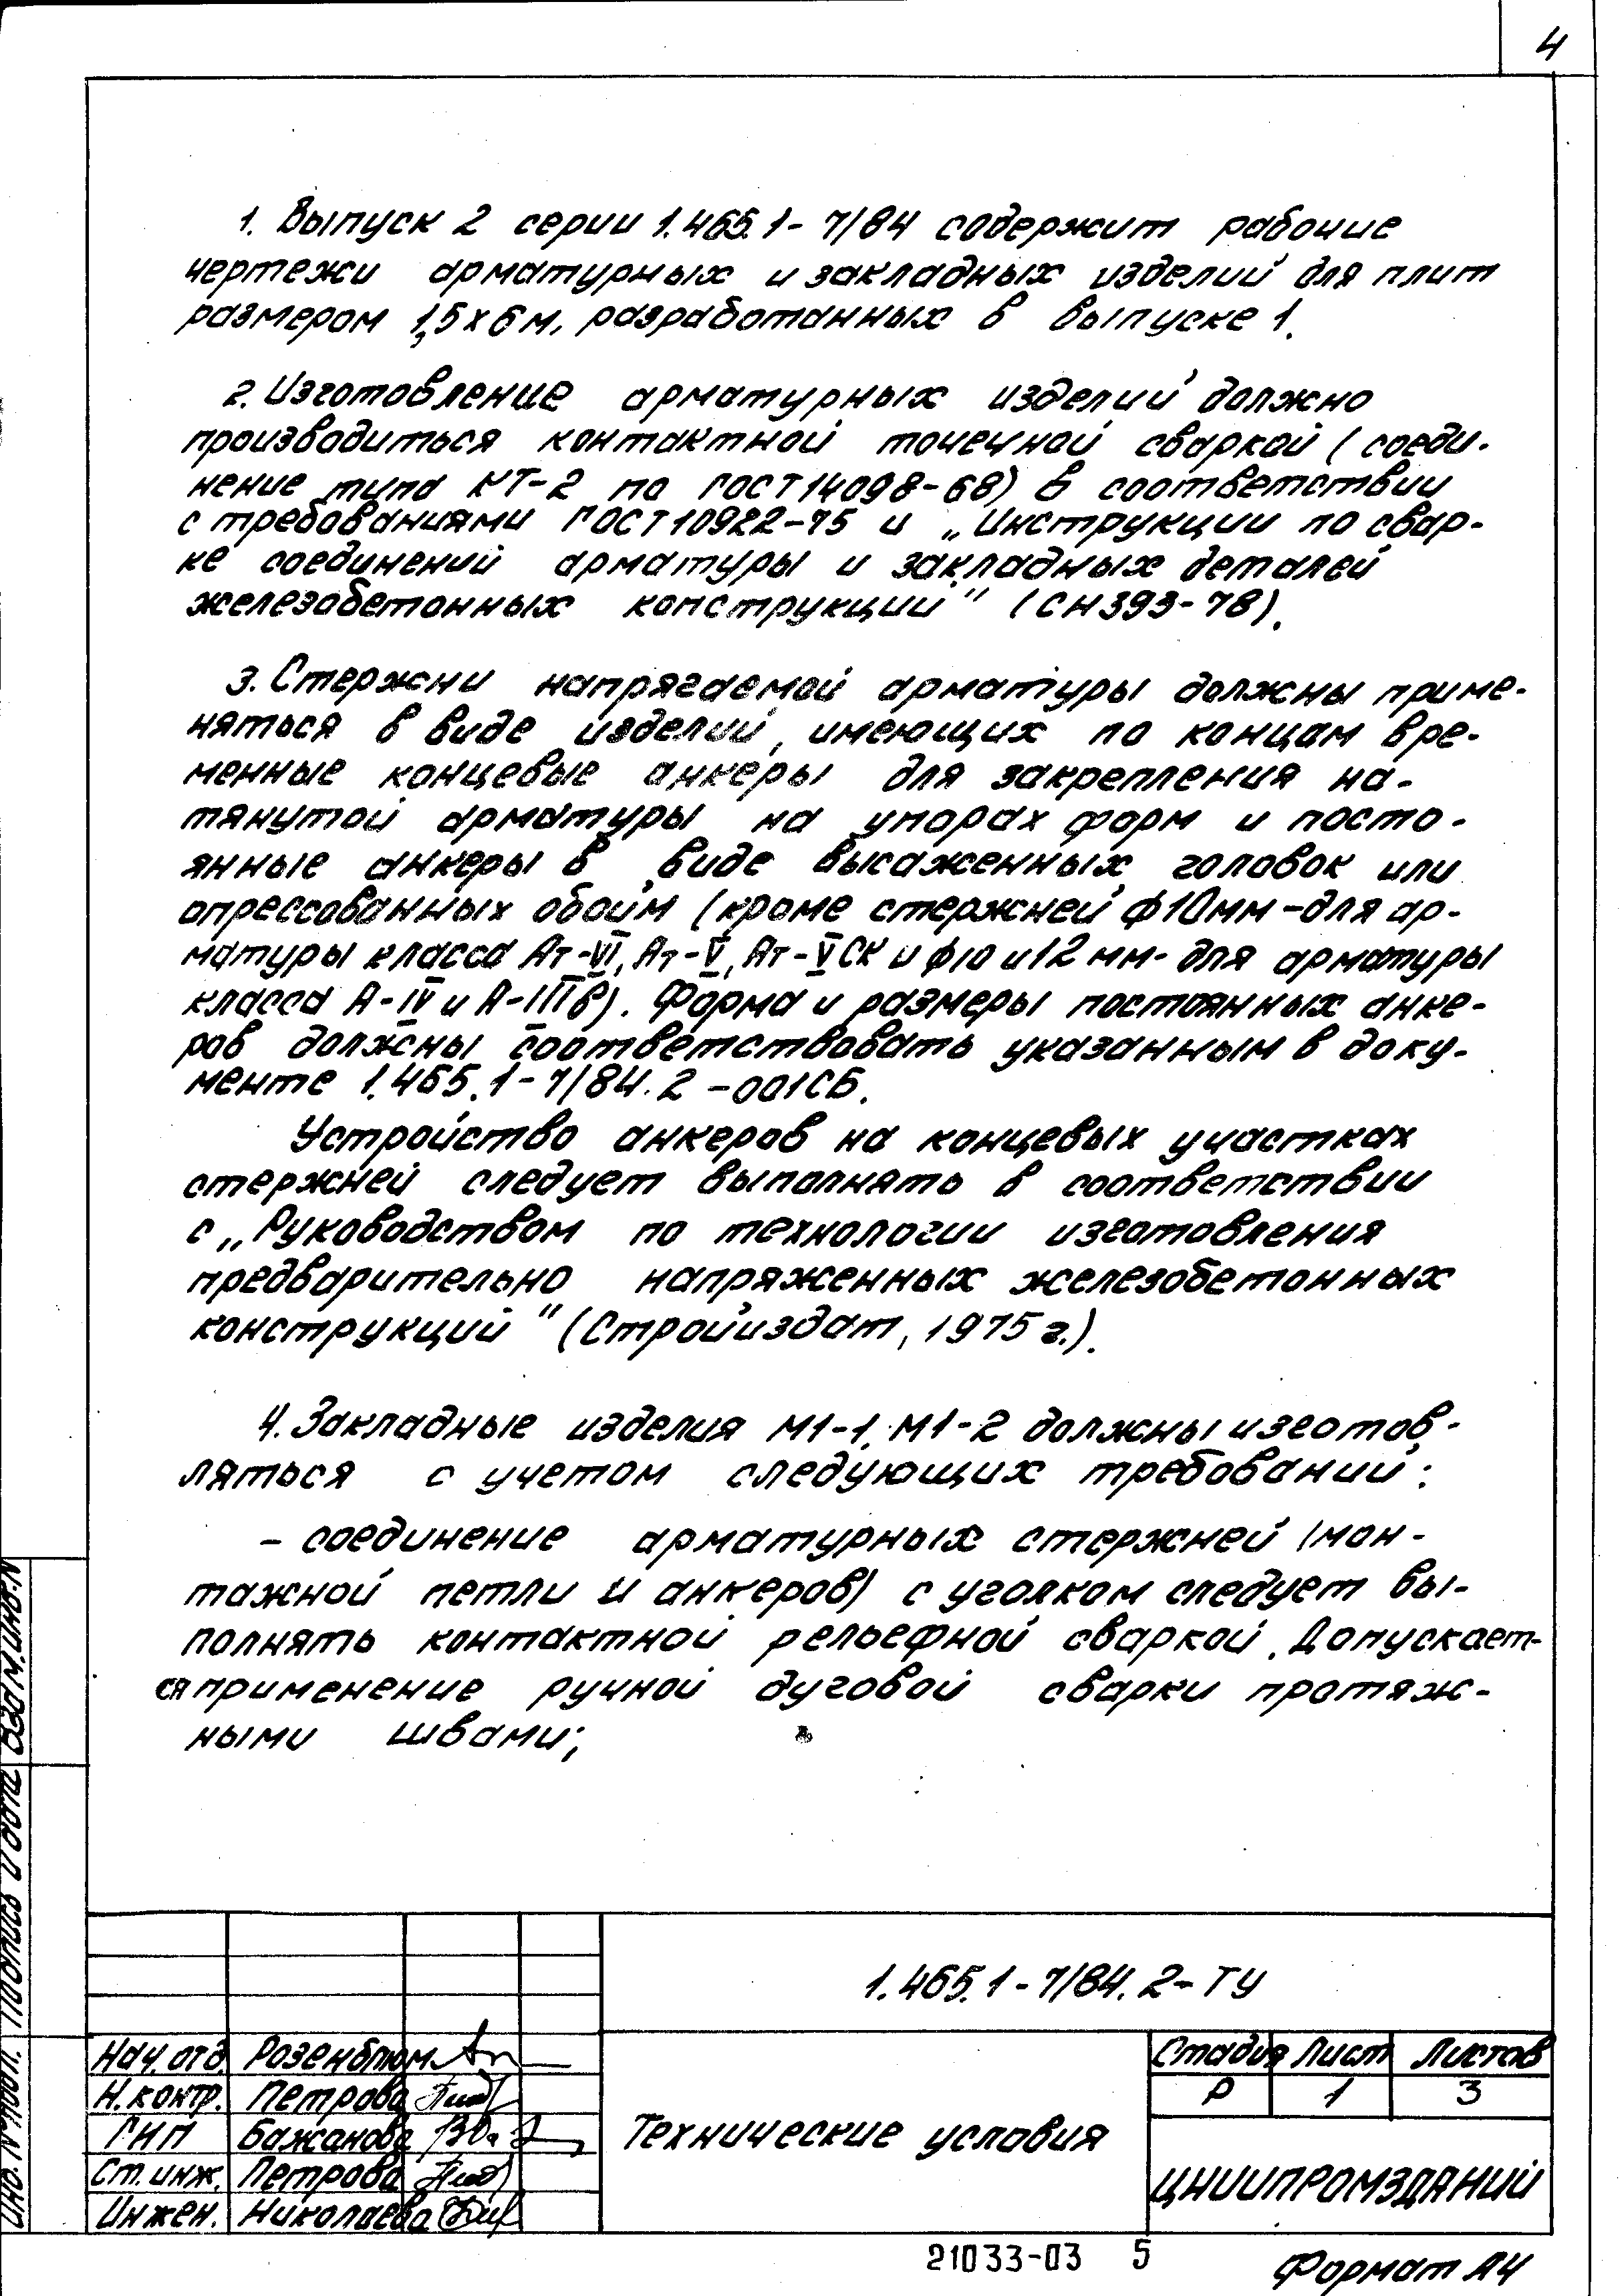 4
1. Выпуск 2 серии 1.465.1-7/84 содержит рабочие
чертежи арматурных и закладных изделий для плит
размером 1,5х6м, разработанных в выпуске 1.
2. Изготовление арматурных изделий должно
производиться контактной точечной сваркой (соеди-
нение типа КТ-2 по ГОСТ 14098-68) в соответствии
с требованиями ГОСТ 10922-75 и „Инструкции по свар-
ке соединений арматуры и закладных деталей
железобетонных конструкций" (СН 393-78).
3. Стержни напрягаемой арматуры должны приме-
няться в виде изделий, имеющих по концам вре-
менные концевые анкеры для закрепления на-
тянутой арматуры на упорах форм и посто-
янные анкеры в виде высаженных головок или
опрессованных обойм (кроме стержней ф10мм-для ар-
матуры класса Ат-VI, Ат-V, Ат-VСК и ф10 и 12 мм-для арматуры
класса А-IV и А-IIIв). Форма и размеры постоянных анке-
ров должны соответствовать указанным в доку-
менте 1.465.1-7/84.2-001СБ.
Устройство анкеров на концевых участках
стержней следует выполнять в соответствии
с „Руководством по технологии изготовления
предварительно напряженных железобетонных
конструкций" (Стройиздат, 1975 г.).
4. Закладные изделия М1-1, М1-2 должны изготов-
ляться с учетом следующих требований:
- соединение арматурных стержней (мон-
тажной петли и анкеров) с уголком следует вы-
полнять контактной рельефной сваркой. Допускает-
ся применение ручной дуговой сварки протяж-
ными швами;
1.465.1-7/84.2-ТУ
Нач. отд. Розенблюм
Н. контр. Петрова
ГИП Бажанова
Ст. инж. Петрова
Инжен. Николаева
Технические условия
Стадия Лист Листов
Р 1 3
ЦНИИПРОМЗДАНИЙ
21033-03 5
Формат А4
Инв. № подл. Подпись и дата Взам. инв. N